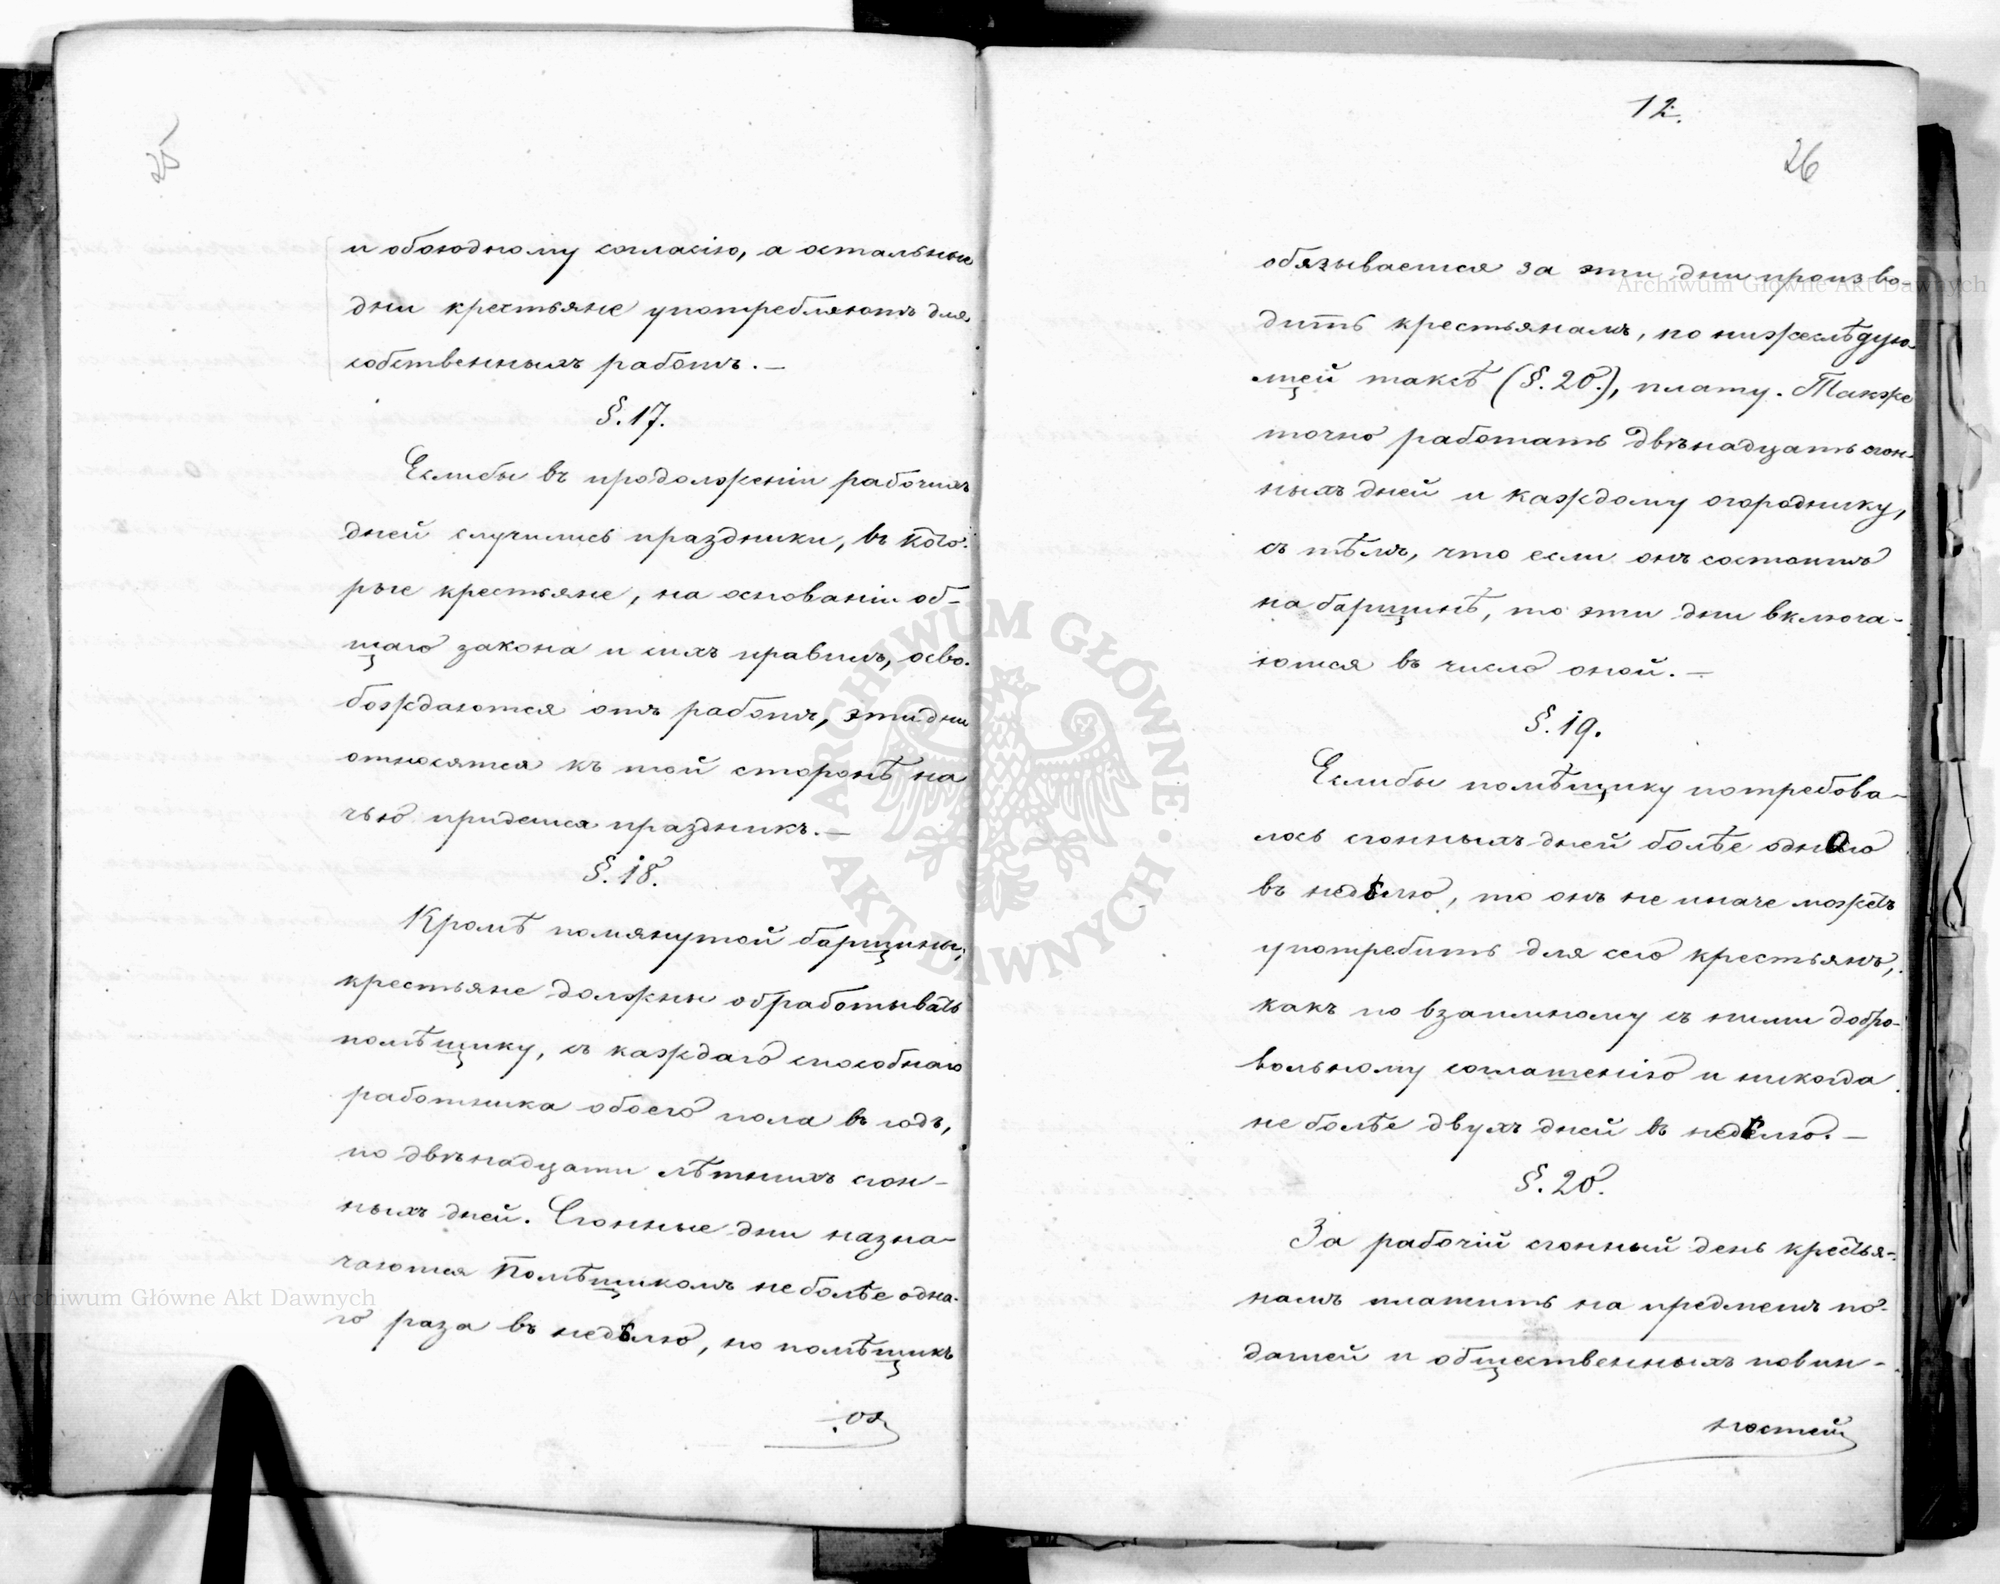 25
и обоюдному согласію, а остальные
дни крестьяне употребляютъ для
собственныхъ работъ. —
§. 17.
Еслибы въ продолженіи рабочихъ
дней случились праздники, въ кото-
рые крестьяне, на основаніи об-
щаго закона и сихъ правилъ, осво-
бождаются отъ работъ, эти дни
относятся къ той сторонѣ на
чью придется праздникъ. —
§. 18.
Кромѣ помянутой барщины,
крестьяне должны обработывать
помѣщику, съ каждаго способнаго
работника обоего пола въ годъ,
по двѣнадцати лѣтнихъ сгон-
ныхъ дней. Сгонные дни назна-
чаются Помѣщикомъ не болѣе одна-
го раза въ недѣлю, но помѣщикъ
об
12.
26
обязывается за эти дни произво-
дить крестьянамъ, по нижеслѣдую-
щей таксѣ (§. 20.), плату. Также
точно работать двѣнадцать сгон-
ныхъ дней и каждому огороднику,
съ тѣмъ, что если онъ состоитъ
на барщинѣ, то эти дни включа-
ются въ число оной. —
§. 19.
Еслибы помѣщику потребова-
лось сгонныхъ дней болѣе одного
въ недѣлю, то онъ не иначе можетъ
употребить для сего крестьянъ,
какъ по взаимному съ ними добро-
вольному соглашенію и никогда
не болѣе двухъ дней въ недѣлю. —
§. 20.
За рабочій сгонный день крестья-
намъ платить на предметъ по-
датей и общественныхъ повин-
ностей
Archiwum Główne Akt Dawnych
Archiwum Główne Akt Dawnych
ARCHIWUM GŁÓWNE · AKT DAWNYCH ·